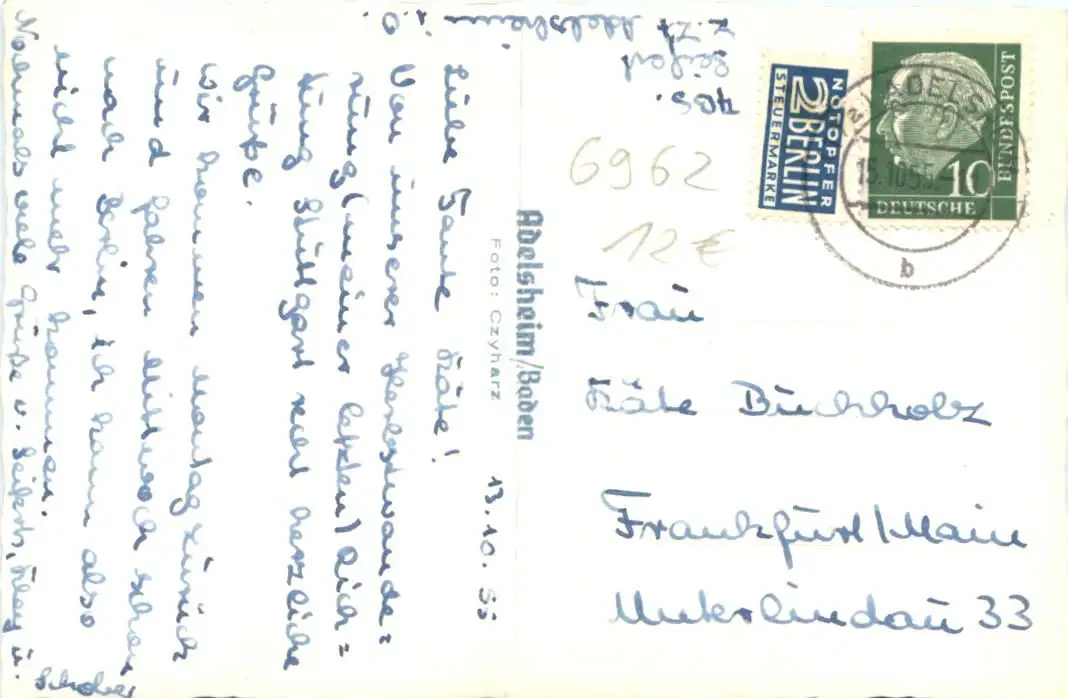 Abs.
Seifert
z. Zt. Adelsheim i. O.
13.10.55
Liebe Tante Käte!
Von unserer Herbstwande=
rung (meiner letzten) Rich=
tung Stuttgart recht herzliche
Grüße.
Wir kommen Montag zurück
und fahren Mittwoch schon
nach Berlin, ich kann also
nicht mehr kommen.
Nochmals viele Grüße v. Seiferts, u.
Adelsheim/Baden
Foto: Czyharz
NOTOPFER
2 BERLIN
STEUERMARKE
BUNDESPOST
10
DEUTSCHE
ADELS
15.10.55
b
6962
12 €
Frau
Käte Buchholz
Frankfurt/Main
Unterlindau 33